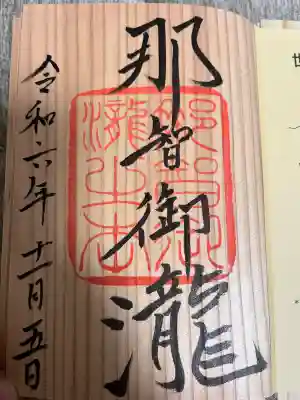 那智御瀧
令和六年十一月五日
世